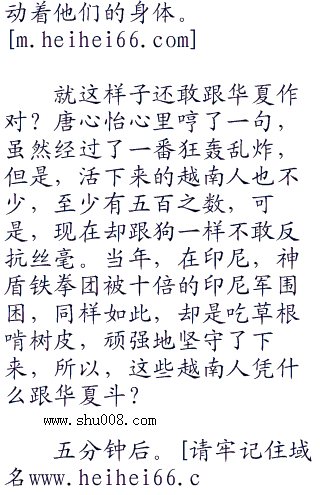 动着他们的身体。
[m.heihei66.com]
就这样子还敢跟华夏作
对？唐心怡心里哼了一句，
虽然经过了一番狂轰乱炸，
但是，活下来的越南人也不
少，至少有五百之数，可
是，现在却跟狗一样不敢反
抗丝毫。当年，在印尼，神
盾铁拳团被十倍的印尼军围
困，同样如此，却是吃草根
啃树皮，顽强地坚守了下
来，所以，这些越南人凭什
么跟华夏斗？
www.shu008.com
五分钟后。[请牢记住域
名www.heihei66.c